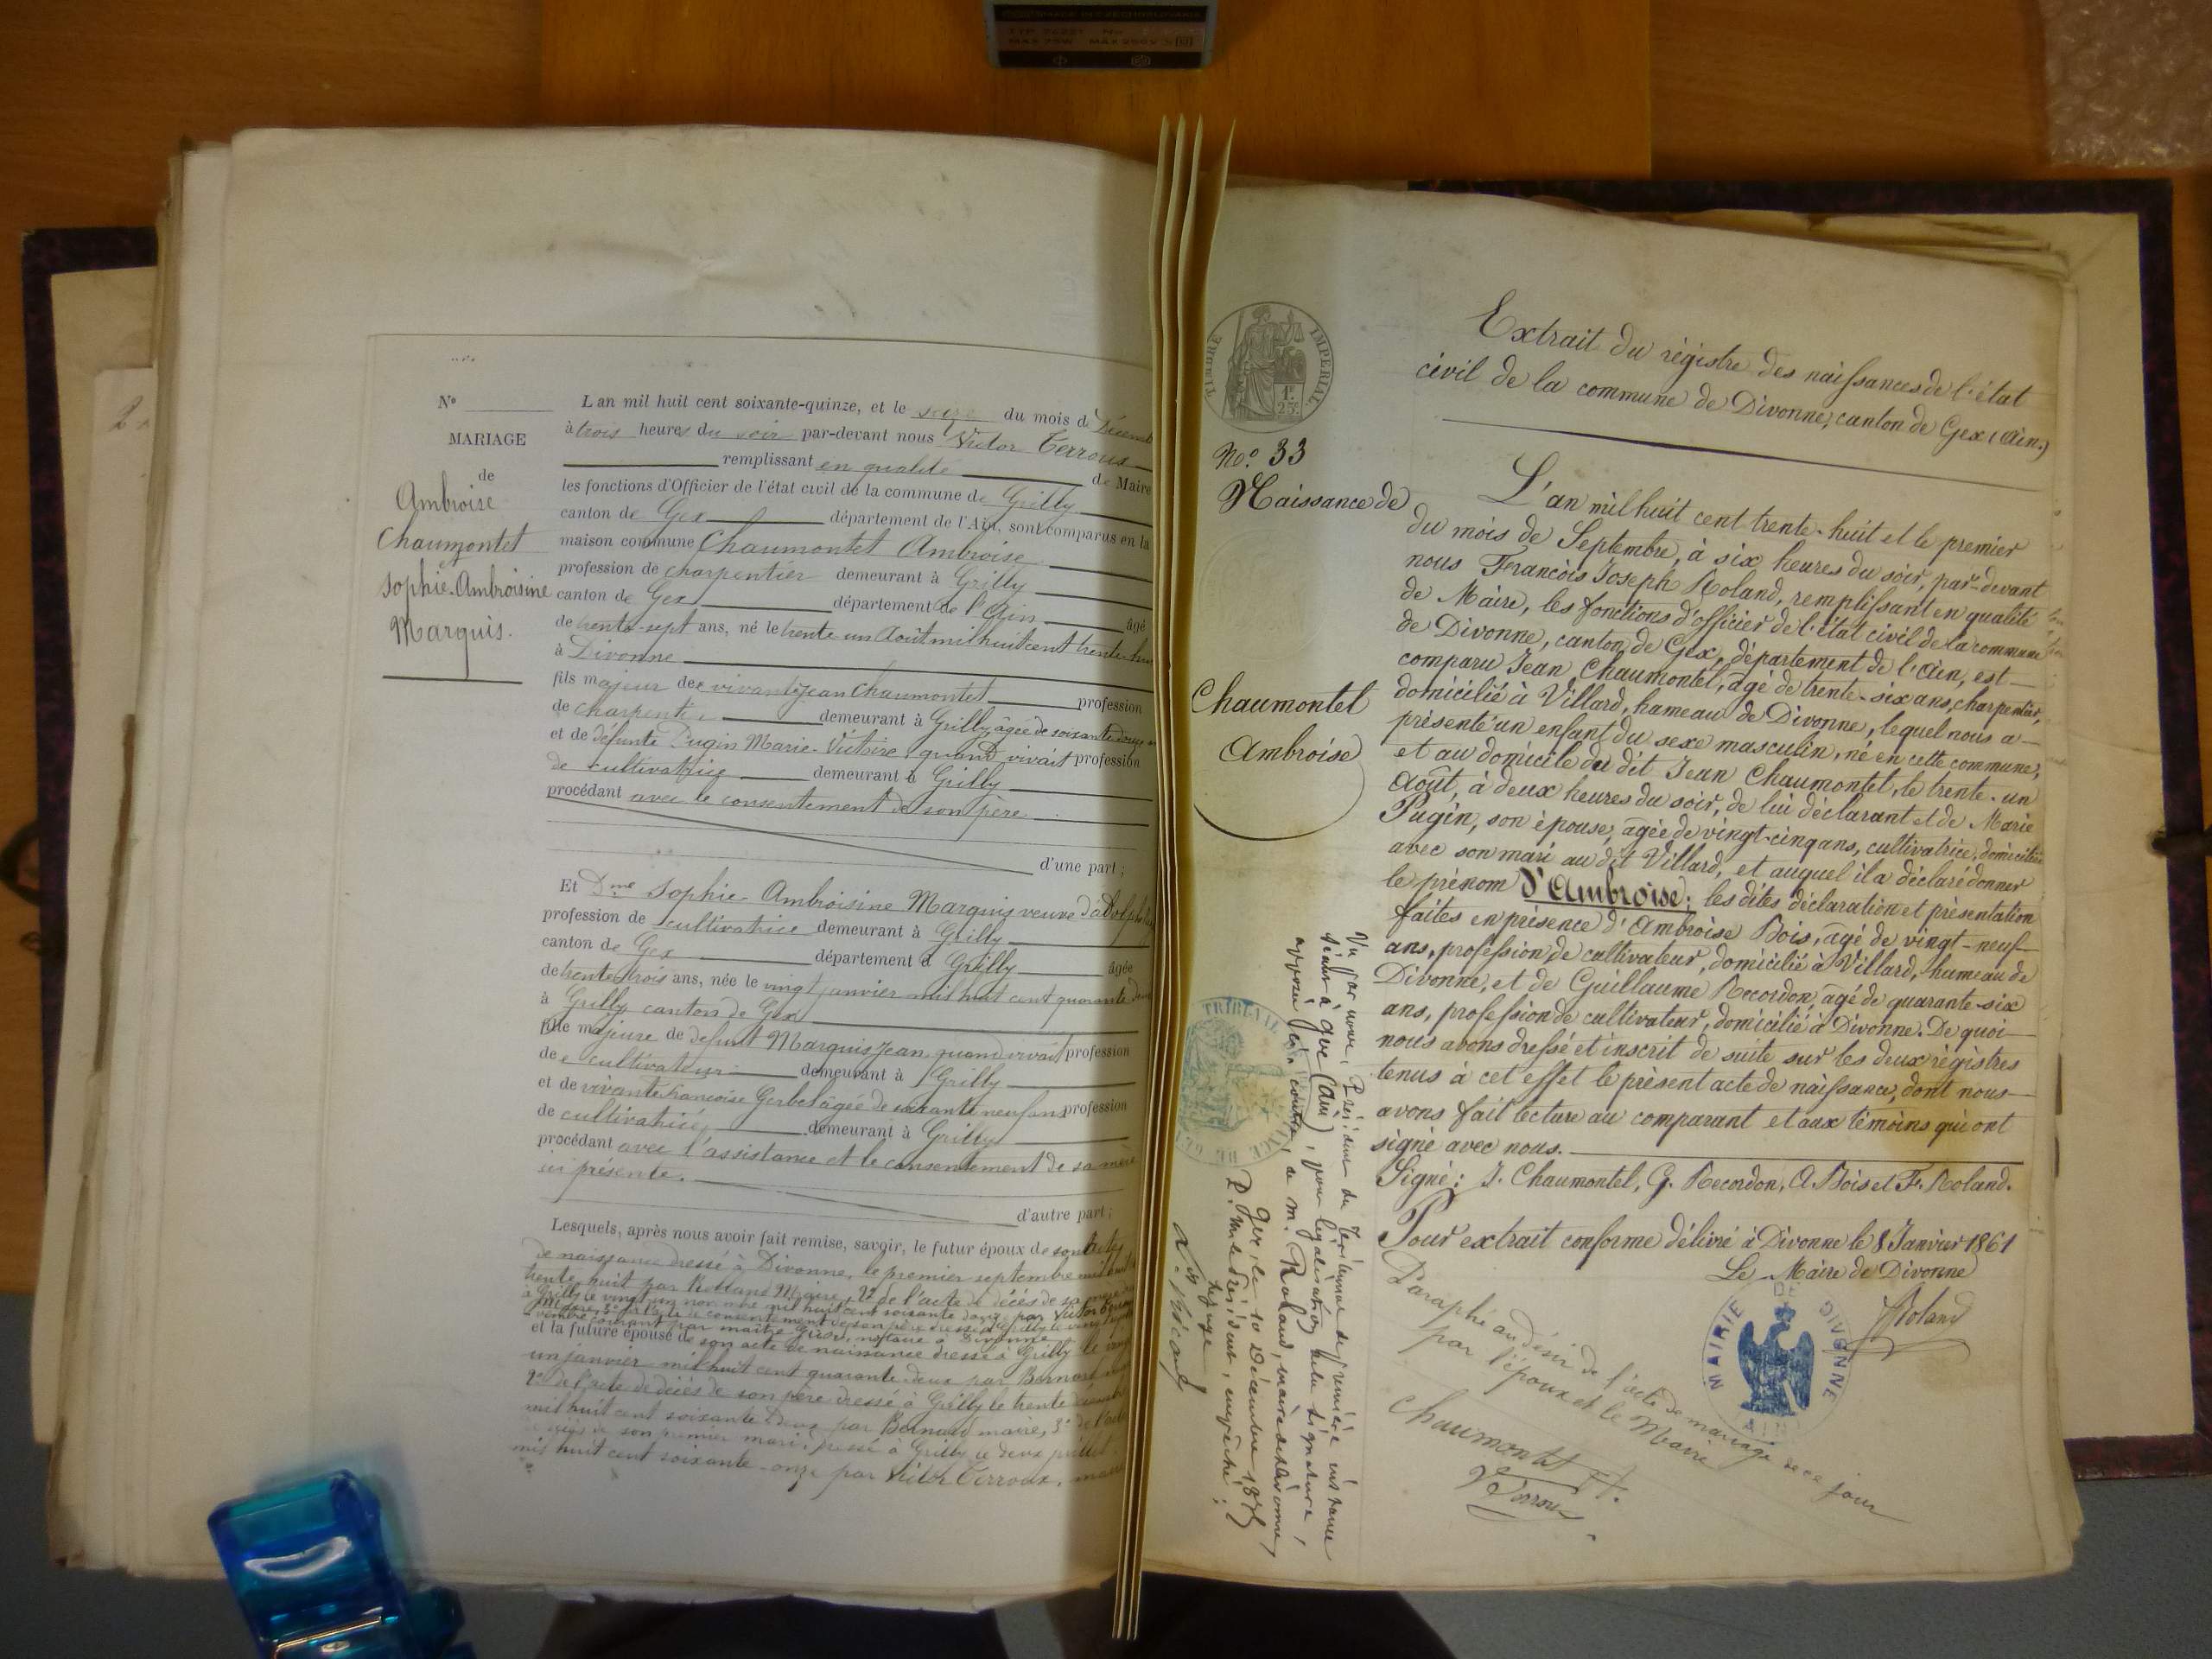 N°
MARIAGE
de
Ambroise
Chaumontet
et
Sophie-Ambroisine
Marquis.
L'an mil huit cent soixante-quinze, et le seize du mois de Décemb
à trois heures du soir par-devant nous Victor Terroux
remplissant en qualité de Maire
les fonctions d'Officier de l'état civil de la commune de Grilly
canton de Gex département de l'Ain, sont comparus en la
maison commune Chaumontet Ambroise
profession de charpentier demeurant à Grilly
canton de Gex département de l'Ain âgé
de trente-sept ans, né le trente un Août mil huit cent trente-hu
à Divonne
fils majeur de vivant Jean Chaumontet profession
de charpentier demeurant à Grilly, âgée de soixante douze
et de défunte Pugin Marie-Victoire, quand vivait profession
de cultivatrice demeurant à Grilly
procédant avec le consentement de son père
d'une part;
Et Dme Sophie-Ambroisine Marquis veuve d'Adolphe
profession de cultivatrice demeurant à Grilly
canton de Gex département à Grilly âgée
de trente trois ans, née le vingt janvier mil huit cent quarante deux
à Grilly canton de Gex
fille majeure de defunt Marquis Jean quand vivait profession
de cultivateur demeurant à Grilly
et de vivante francoise Gerbel âgée de soixante neuf ans profession
de cultivatrice, demeurant à Grilly
procédant avec l'assistance et le consentement de sa mère
ici présente.
d'autre part;
Lesquels, après nous avoir fait remise, savoir, le futur époux de son acte
de naissance dressé à Divonne, le premier septembre mil huit
trente huit par Rolland Maire, 2° de l'acte de décés de sa mère
à Grilly le vingt un novembre mil huit cent soixante douze par Victor Terroux
Maire, 3° de l'acte de consentement de son père dressé à Grilly le vingt
courant par maître Gros, notaire à Divonne
et la future épouse de son acte de naissance dressé à Grilly le vingt
un janvier mil huit cent quarante deux par Bernard
2° de l'acte de décès de son père dressé à Grilly le trente décembre
mil huit cent soixante deux par Bernard maire, 3° de l'acte
de décès de son premier mari, dressé à Grilly le deux juillet
mil huit cent soixante-onze par Victor Terroux, maire
TIMBRE IMPERIAL
1F
25c
Extrait du régistre des naissances de l'état
civil de la commune de Divonne, canton de Gex (Ain.)
No. 33
Naissance de
Chaumontel
Ambroise
L'an mil huit cent trente-huit et le premier
du mois de Septembre, à six heures du soir, par-devant
nous François Joseph Roland, remplissant en qualité
de Maire, les fonctions d'officier de l'état civil de la commune
de Divonne, canton de Gex, département de l'Ain, est
comparu Jean Chaumontel, âgé de trente-six ans, charpentier,
domicilié à Villard, hameau de Divonne, lequel nous a
présenté un enfant du sexe masculin, né en cette commune,
et au domicile du dit Jean Chaumontel, le trente-un
Août, à deux heures du soir, de lui déclarant et de Marie
Pugin, son épouse, âgée de vingt-cinq ans, cultivatrice, domiciliée
avec son mari au dit Villard, et auquel il a déclaré donner
le prénom d'Ambroise; les dites déclaration et présentation
faites en présence d'Ambroise Bois, âgé de vingt-neuf
ans, profession de cultivateur, domicilié à Villard, hameau de
Divonne, et de Guillaume Recordon, âgé de quarante-six
ans, profession de cultivateur, domicilié à Divonne. De quoi
nous avons dressé et inscrit de suite sur les deux régistres
tenus à cet effet le présent acte de naissance, dont nous
avons fait lecture au comparant et aux témoins qui ont
signé avec nous.
Signé: J. Chaumontel, G. Recordon, A. Bois et F. Roland.
Pour extrait conforme délivré à Divonne le 8 Janvier 1861
Le Maire de Divonne
Roland
MAIRIE DE DIVONNE
AIN
Paraphé au désir de l'acte de mariage de ce jour
par l'époux et le Maire
Chaumontet A.
V Terroux
Vu par nous, Président du Tribunal de première instance
séant à Gex (Ain), pour légalisation de la signature,
apposée ci-contre, de M. Roland, maire de Divonne,
Gex, le 10 Décembre 1875
P. M. le Président, empêché,
Le Juge
TRIBUNAL